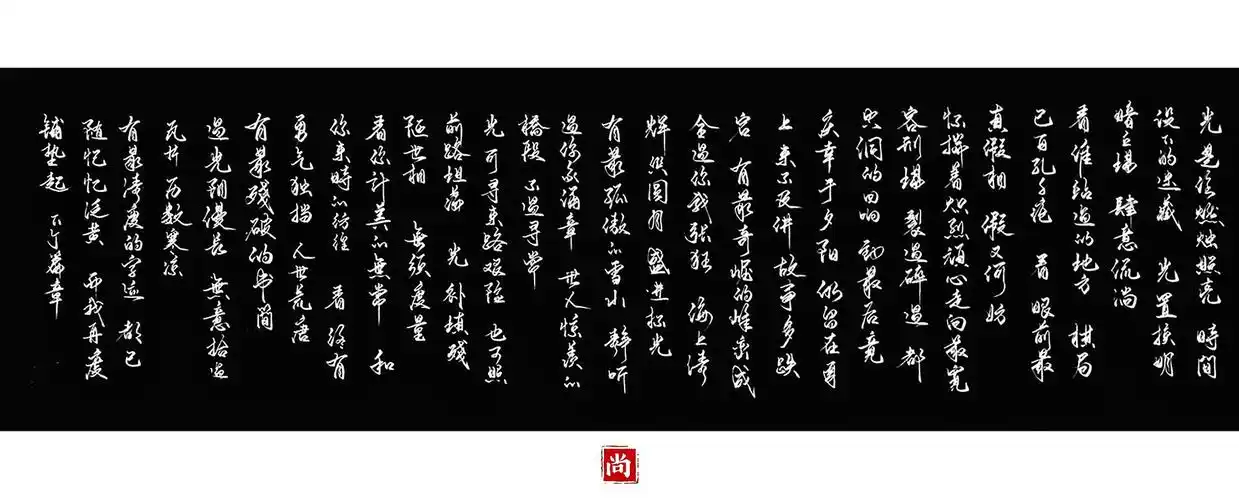 光是位燃烛照亮 時間
设下的迷藏 光置换明
暗立場 肆意流淌
看谁站過的地方 棋局
已百孔千疮 看眼前最
真微相 微又何妨
怀揣着炽烈頑心走向最寬
容刑場 製過碎過 都
空洞的回响 動最后竟
庆幸于夕陽 仍留在身
上来不及讲 故事多跌
宕 有最奇崛的峰峦成
全過你我張狂 海上清
輝与圓月盛进杯光
有最孤傲的雪山 静听
過你我誦章 世人惊羡的
橋段 不過尋常
光可寻来路艰险 也可照
前路坦荡 光补填残
陋世相 無须度量
看你計算的無常 和
你来時的彷徨 看 總有
勇气独擋 人世荒唐
有最残破的书簡
過光陰漫長 無意拾過
瓦片 历数寒凉
有最清瘦的字迹 都已
随忆忆泛黄 而我再度
铺垫起 下个篇章
尚